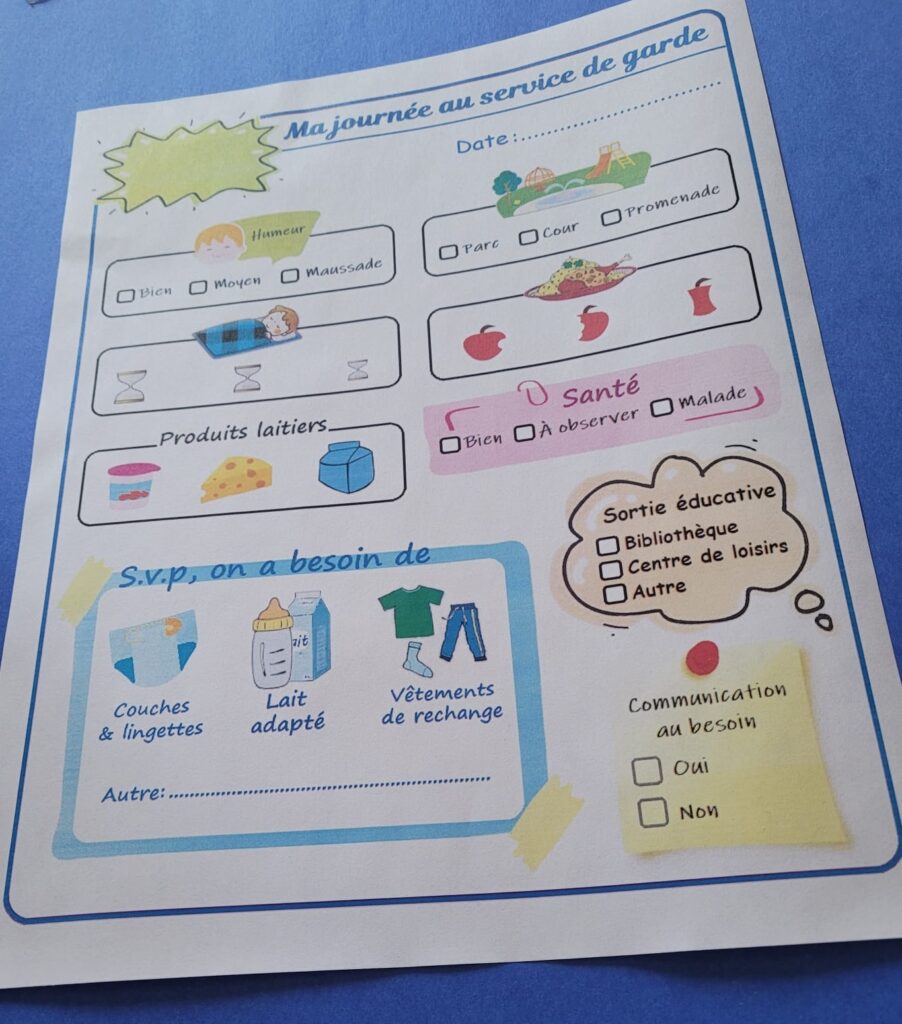 Ma journée au service de garde
Date :
Humeur
Bien Moyen Maussade
Parc Cour Promenade
Produits laitiers
Santé
Bien À observer Malade
Sortie éducative
Bibliothèque
Centre de loisirs
Autre
S.v.p, on a besoin de
ait
Couches
& lingettes
Lait
adapté
Vêtements
de rechange
Autre:
Communication
au besoin
Oui
Non